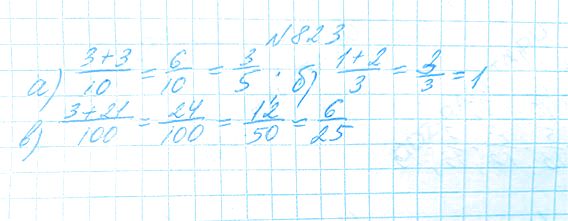 N823
а) 3+3/10 = 6/10 = 3/5. б) 1+2/3 = 3/3 = 1
в) 3+21/100 = 24/100 = 12/50 = 6/25